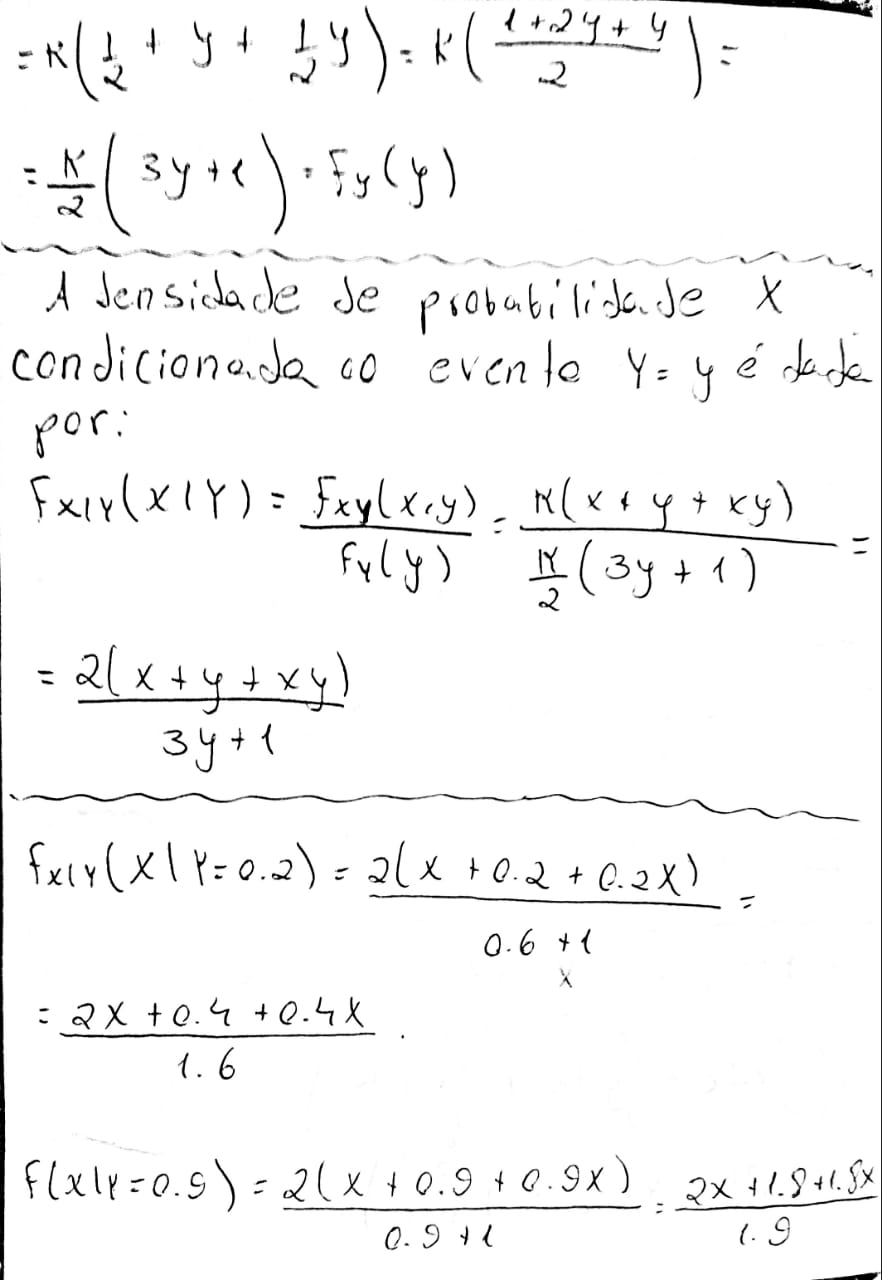 = K(1/2 + y + 1/2 y) = K((1+2y+y)/2) =
= K/2 (3y+1) = fy(y)
A densidade de probabilidade X
condicionada ao evento Y=y é dada
por:
fx|y(X|Y) = fxy(x,y)/fy(y) = K(x+y+xy)/(K/2 (3y+1)) =
= 2(x+y+xy)/(3y+1)
fx|y(X|Y=0.2) = 2(x+0.2+0.2X)/(0.6+1) =
x
= (2X+0.4+0.4X)/1.6 .
f(x|Y=0.9) = 2(x+0.9+0.9x)/(0.9+1) = (2x+1.8+1.8x)/1.9